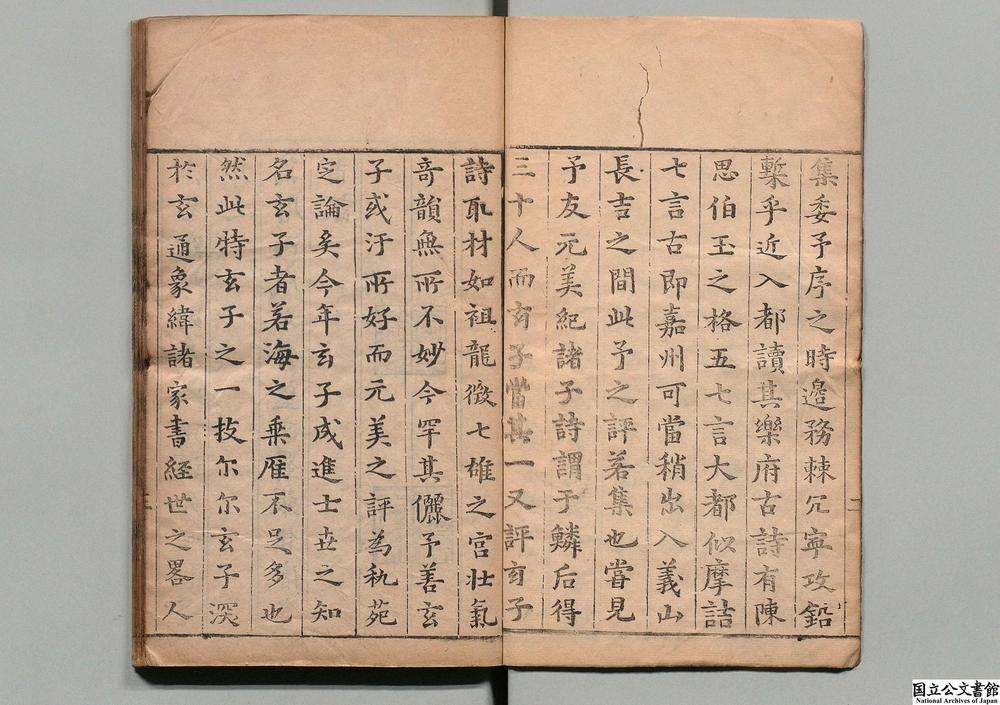 集委予序之時邉務棘冗寧攻鉛
槧乎近入都讀其樂府古詩有陳
思伯玉之格五七言大都似摩詰
七言古即嘉州可當稍出入義山
長吉之間此予之評若集也嘗見
予友元美紀諸子詩謂于鱗后得
三十人而玄子當其一又評玄子
詩取材如祖龍徴七雄之宫壯氣
竒韻無所不妙今罕其儷予善玄
子或汙所好而元美之評為秇苑
定論矣今年玄子成進士丗之知
名玄子者若海之乗雁不足多也
然此特玄子之一技尔尔玄子深
於玄通象緯諸家書経世之畧人
国立公文書館
National Archives of Japan